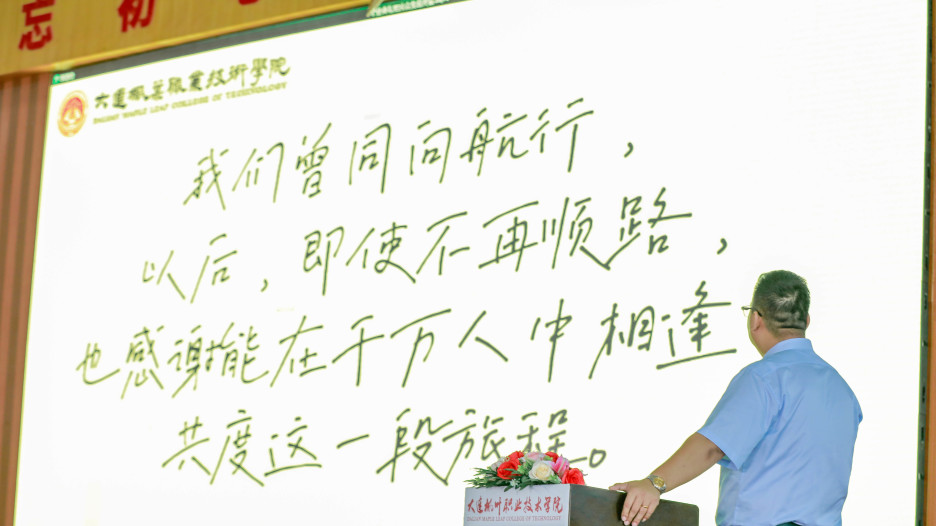 忘初
大連楓葉職業技術學院
DALIAN MAPLE LEAF COLLEGE OF TECHNOLOGY
我们曾同向航行，
以后，即使不再顺路，
也感谢能在千万人中相逢
共度这一段旅程。
大连枫叶职业技术学院
DALIAN MAPLE LEAF COLLEGE OF TECHNOLOGY